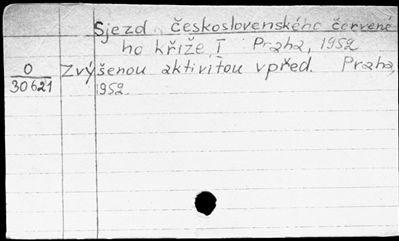 Sjezd československého červené-
ho kříže I Praha, 1952
0 Zvýšenou aktivitou vpřed. Praha,
30621 1952.